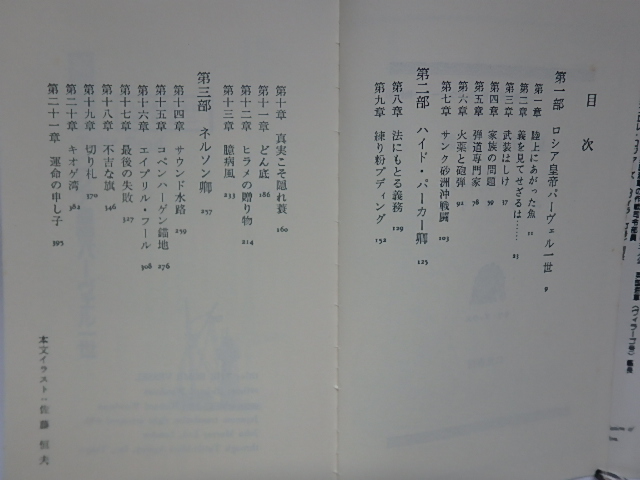 目次
第一部 ロシア皇帝パーヴェル一世 9
第一章 陸上にあがった魚 11
第二章 義を見てせざるは…… 25
第三章 武装はしけ 37
第四章 家族の問題 59
第五章 弾道専門家 78
第六章 火薬と砲弾 92
第七章 サンク砂洲沖戦闘 103
第二部 ハイド・パーカー卿 125
第八章 法にもとる義務 129
第九章 練り粉プディング 152
第十章 真実こそ隠れ蓑 160
第十一章 どん底 186
第十二章 ヒラメの贈り物 214
第十三章 臆病風 233
第三部 ネルソン卿 257
第十四章 サウンド水路 259
第十五章 コペンハーゲン錨地 276
第十六章 エイプリル・フール 308
第十七章 最後の失敗 327
第十八章 不吉な旗 346
第十九章 切り札 370
第二十章 キオゲ湾
第二十一章 運命の申し子 395
本文イラスト：佐藤恒夫